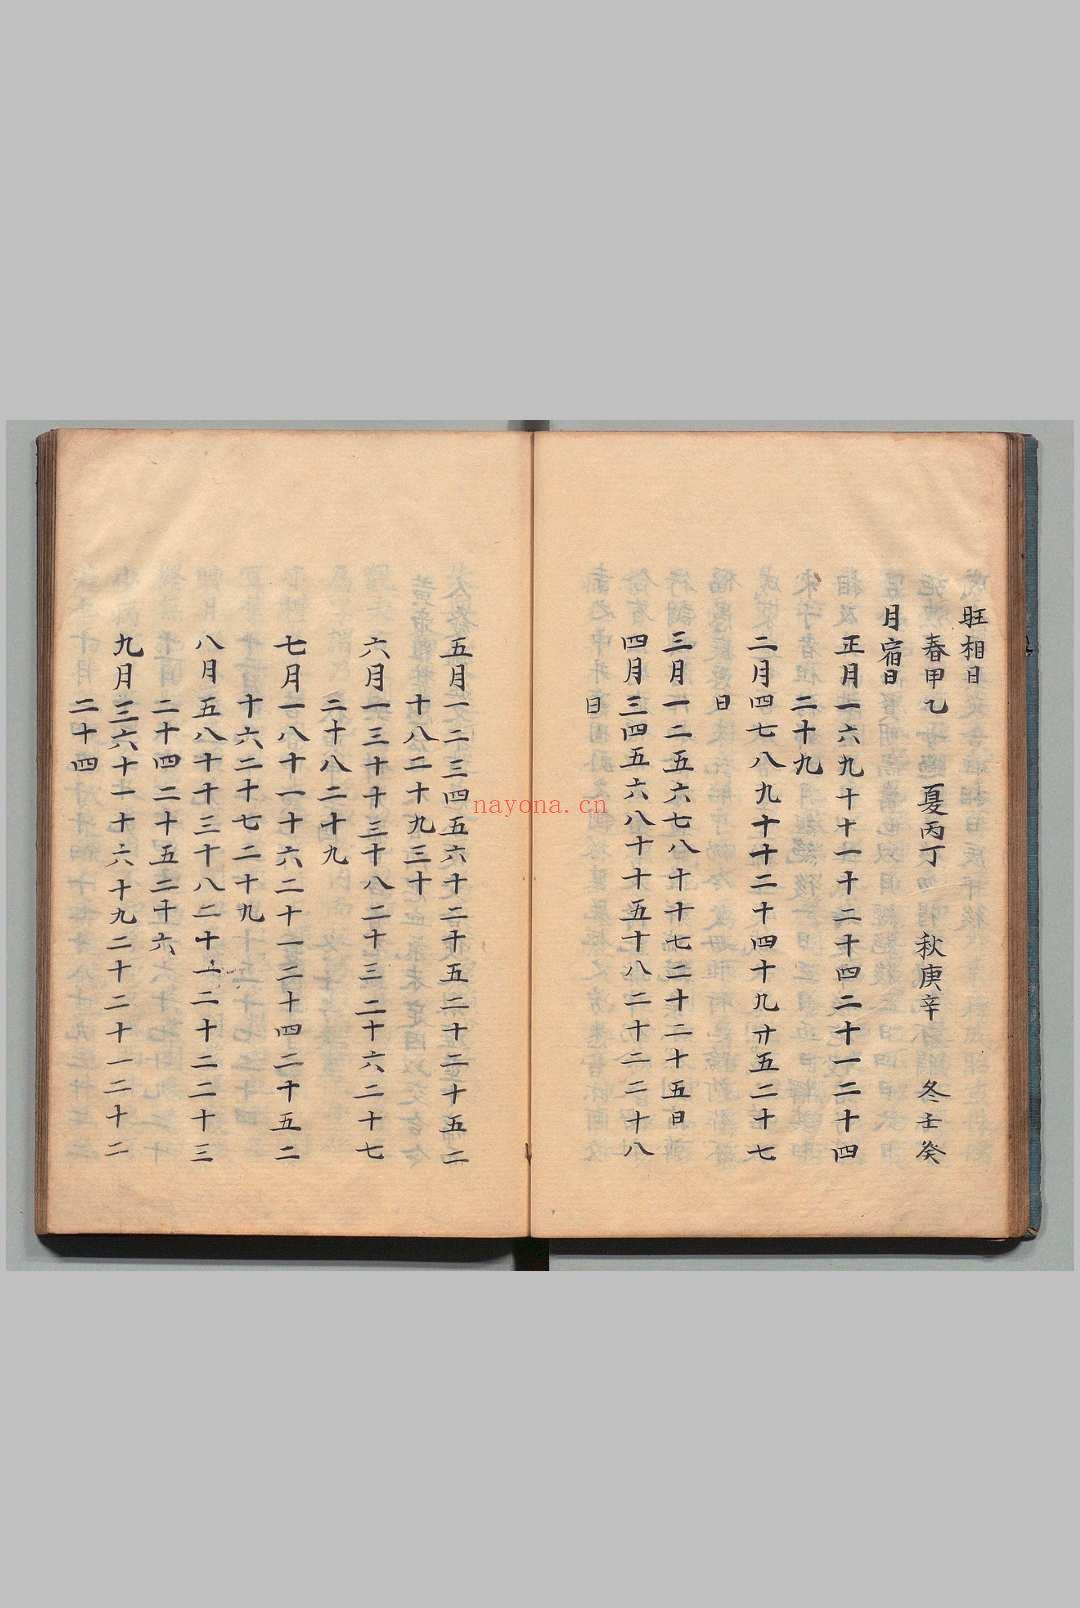 旺相日
春甲乙 夏丙丁 秋庚辛 冬壬癸
月宿日
正月一六九十十一十二十四二十一二十四
二十九
二月四七八九十十二十四十九廿五二十七
日
三月一二五六七八十十七二十二十五日
四月三四五六八十十五十八二十二二十八
日
五月一二三四五六十二十五二十二十五二
十八二十九三十
六月一三十十三十八二十三二十六二十七
二十八二十九
七月一八十一十六二十一二十四二十五二
十六二十七二十九
八月五八十十三十八二十一二十二二十三
二十四二十五二十六
九月三六十一十六十九二十二十一二十二
二十四
nayona.cn